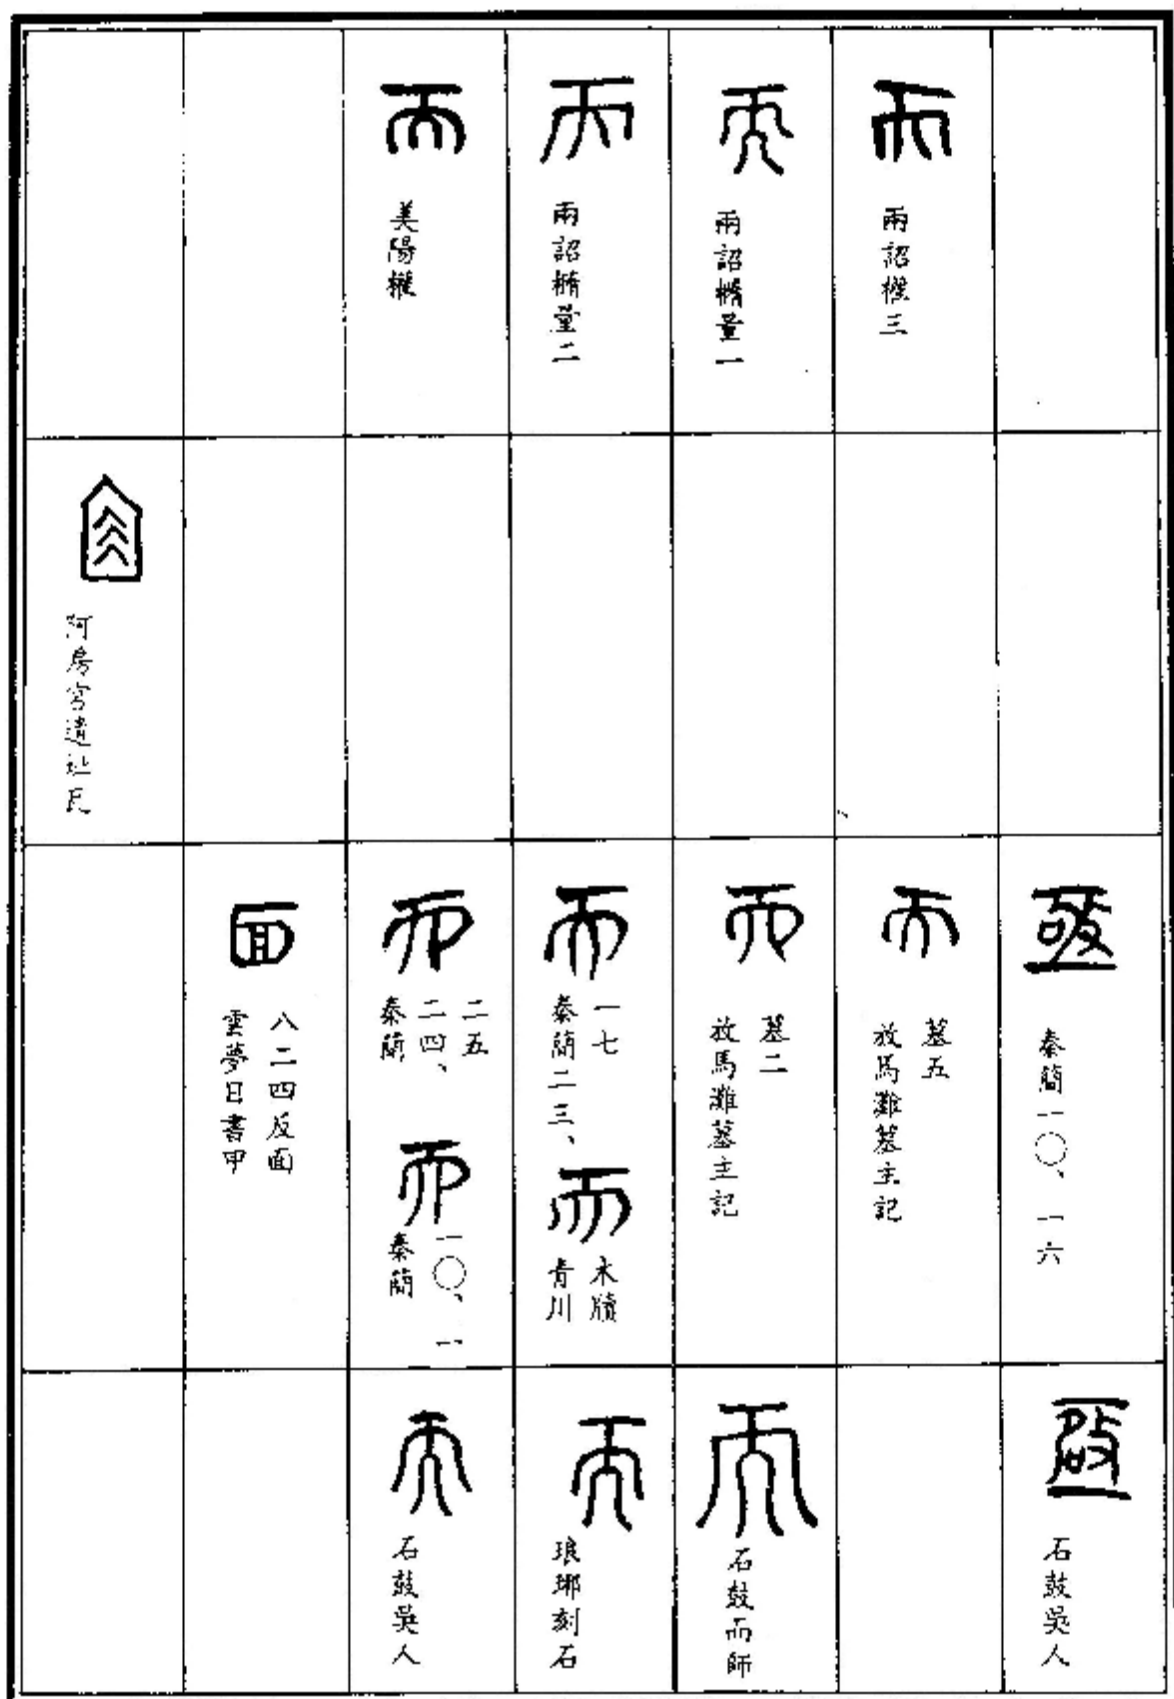 而
兩詔權三
而
兩詔橢量一
而
兩詔橢量二
而
美陽權
阿房宮遺址瓦
亟
秦簡一〇、一六
而
放馬灘墓主記
墓五
而
放馬灘墓主記
墓二
而
秦簡二三、
一七
而
青川
木牘
而
秦簡
二四、
二五
而
秦簡
一〇、一
面
雲夢日書甲
八二四反面
亟
石鼓吳人
而
石鼓而師
而
琅琊刻石
而
石鼓吳人